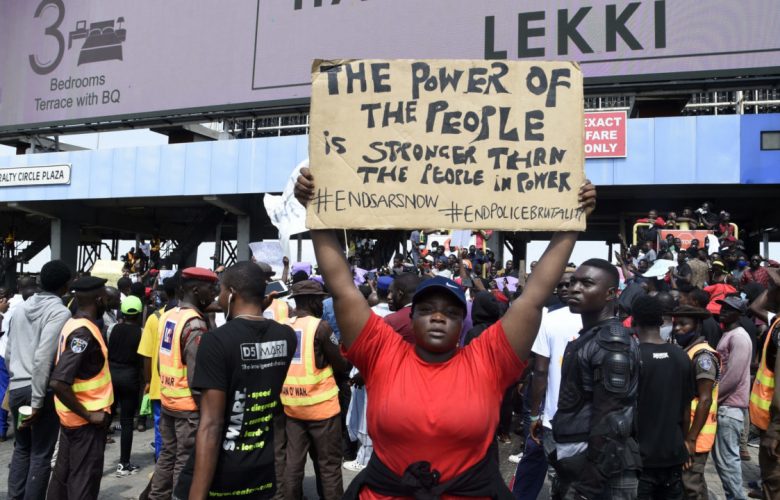 3
Bedrooms
Terrace with BQ
LEKKI
EXACT
FARE
ONLY
RALTY CIRCLE PLAZA
THE POWER OF
THE PEOPLE
is STRONGER THAN
THE PEOPLE in POWER
#ENDSARSNOW #ENDPOLICEBRUTALITY
DSMART